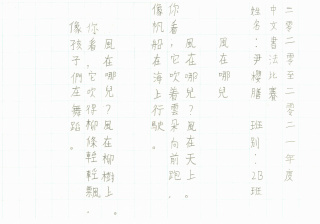 二零二零至二零二一年度
中文書法比賽
姓名：尹櫻腯 班別：2B班
風在哪兒
風在哪兒？風在天上。
你看，它吹着雲朵向前跑，
像帆船在海上行駛。
風在哪兒？風在柳樹上。
你看，它吹得柳條輕輕飄，
像孩子們在舞蹈。